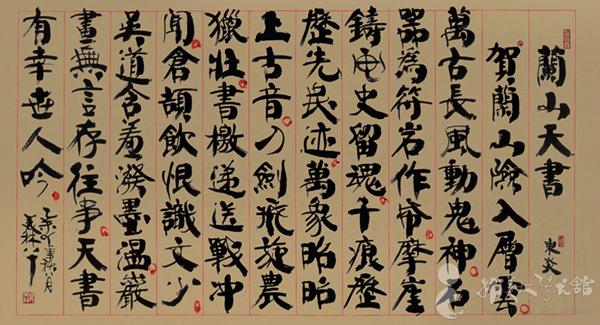 蘭山天書
賀蘭山險入層雲
萬古長風動鬼神石
器為符岩作摩崖
鑄史留魂千痕歷
歷先民迹萬象昭昭
上古音刀劍飛旋農
獵壯書檄遞送戰冲
聞倉頡飲恨識文少
吳道含羞潑墨溫巖
畫無言存往事天書
有幸世人吟